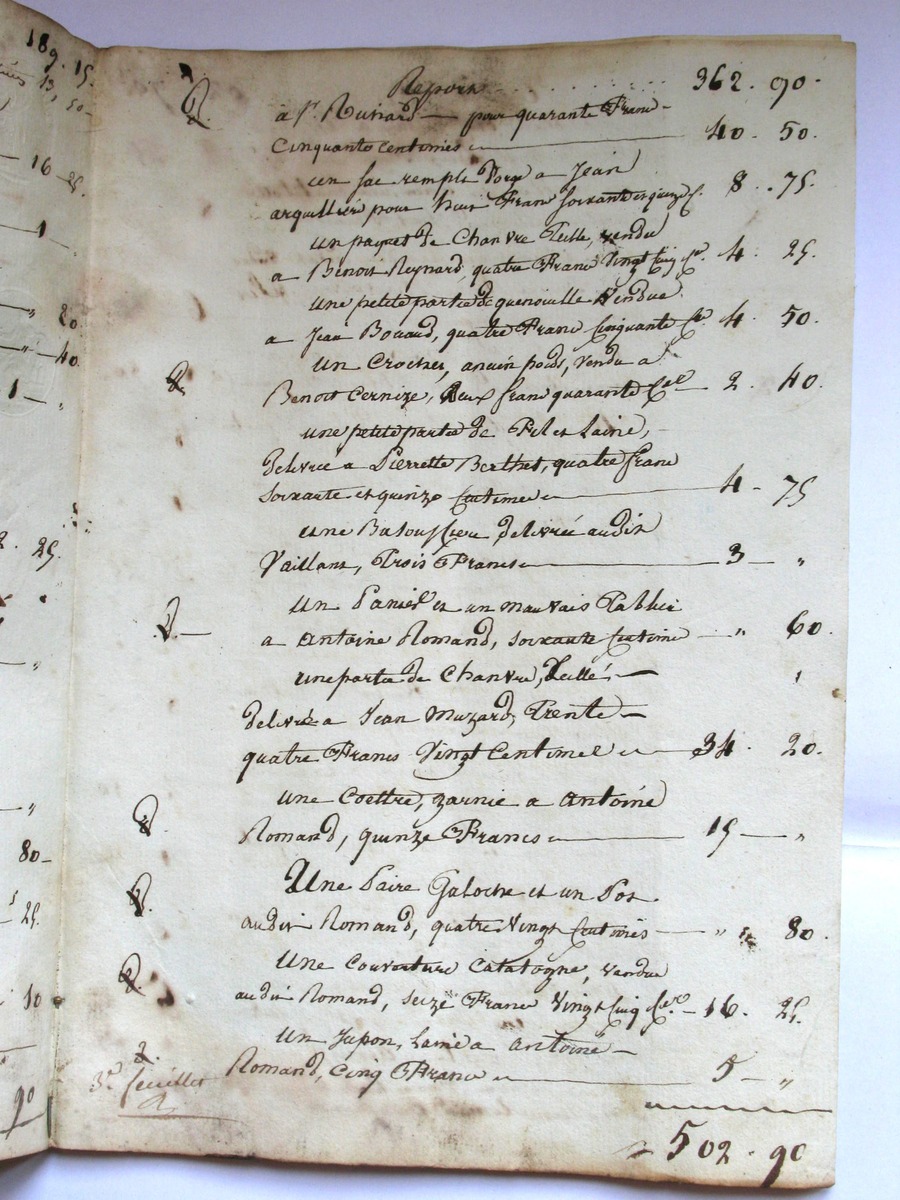 189. 15
13, 50
16 25
1
20
40
1 "
2. 25
"
"
80
25
10
90
Report . . . . . . . . 362. 90.
a Sr. Rusiard — pour quarante Franc
Cinquante Centimes — 40. 50.
un sac rempli Dorge a Jean
arquillere pour huit Franc soixante et quinze C. 8. 75.
un paquet de Chanvre Teille, vendu
a Benoit Reynard, quatre Franc Vingt Cinq Ces. 4. 25.
une petite partie de quenouille Vendue
a Jean Bouaud, quatre Franc Cinquante Ces 4. 50.
un Crochet, ancien poids, vendu a
Benoit Cernize, Deux franc quarante Ces — 2. 40.
une petite partie de Fil et Laine,
Delivrée a Pierrette Berthet, quatre franc
soixante et quinze Centimes — 4 - 75
une delivrée audit
Vaillant, Trois Francs — 3 — "
un Panier et un mauvais Tablier
a Antoine Romand, soixante Centime — " 60.
une partie de Chanvre, Teillé —
delivré a Jean Muzard, Trente —
quatre Francs Vingt Centimes — 34. 20.
une Coettre, garnie a Antoine
Romand, quinze Francs — 15 — "
Une Paire Galoche et un Pot
audit Romand, quatre Vingt Centimes — " 80.
une Couverture Catalogne, vendue
audit Romand, seize Franc Vingt Cinq Ces. — 16. 25.
un Jupon, Laine a Antoine —
Romand, Cinq Franc — 5 — "
3e. feuillet
502. 90